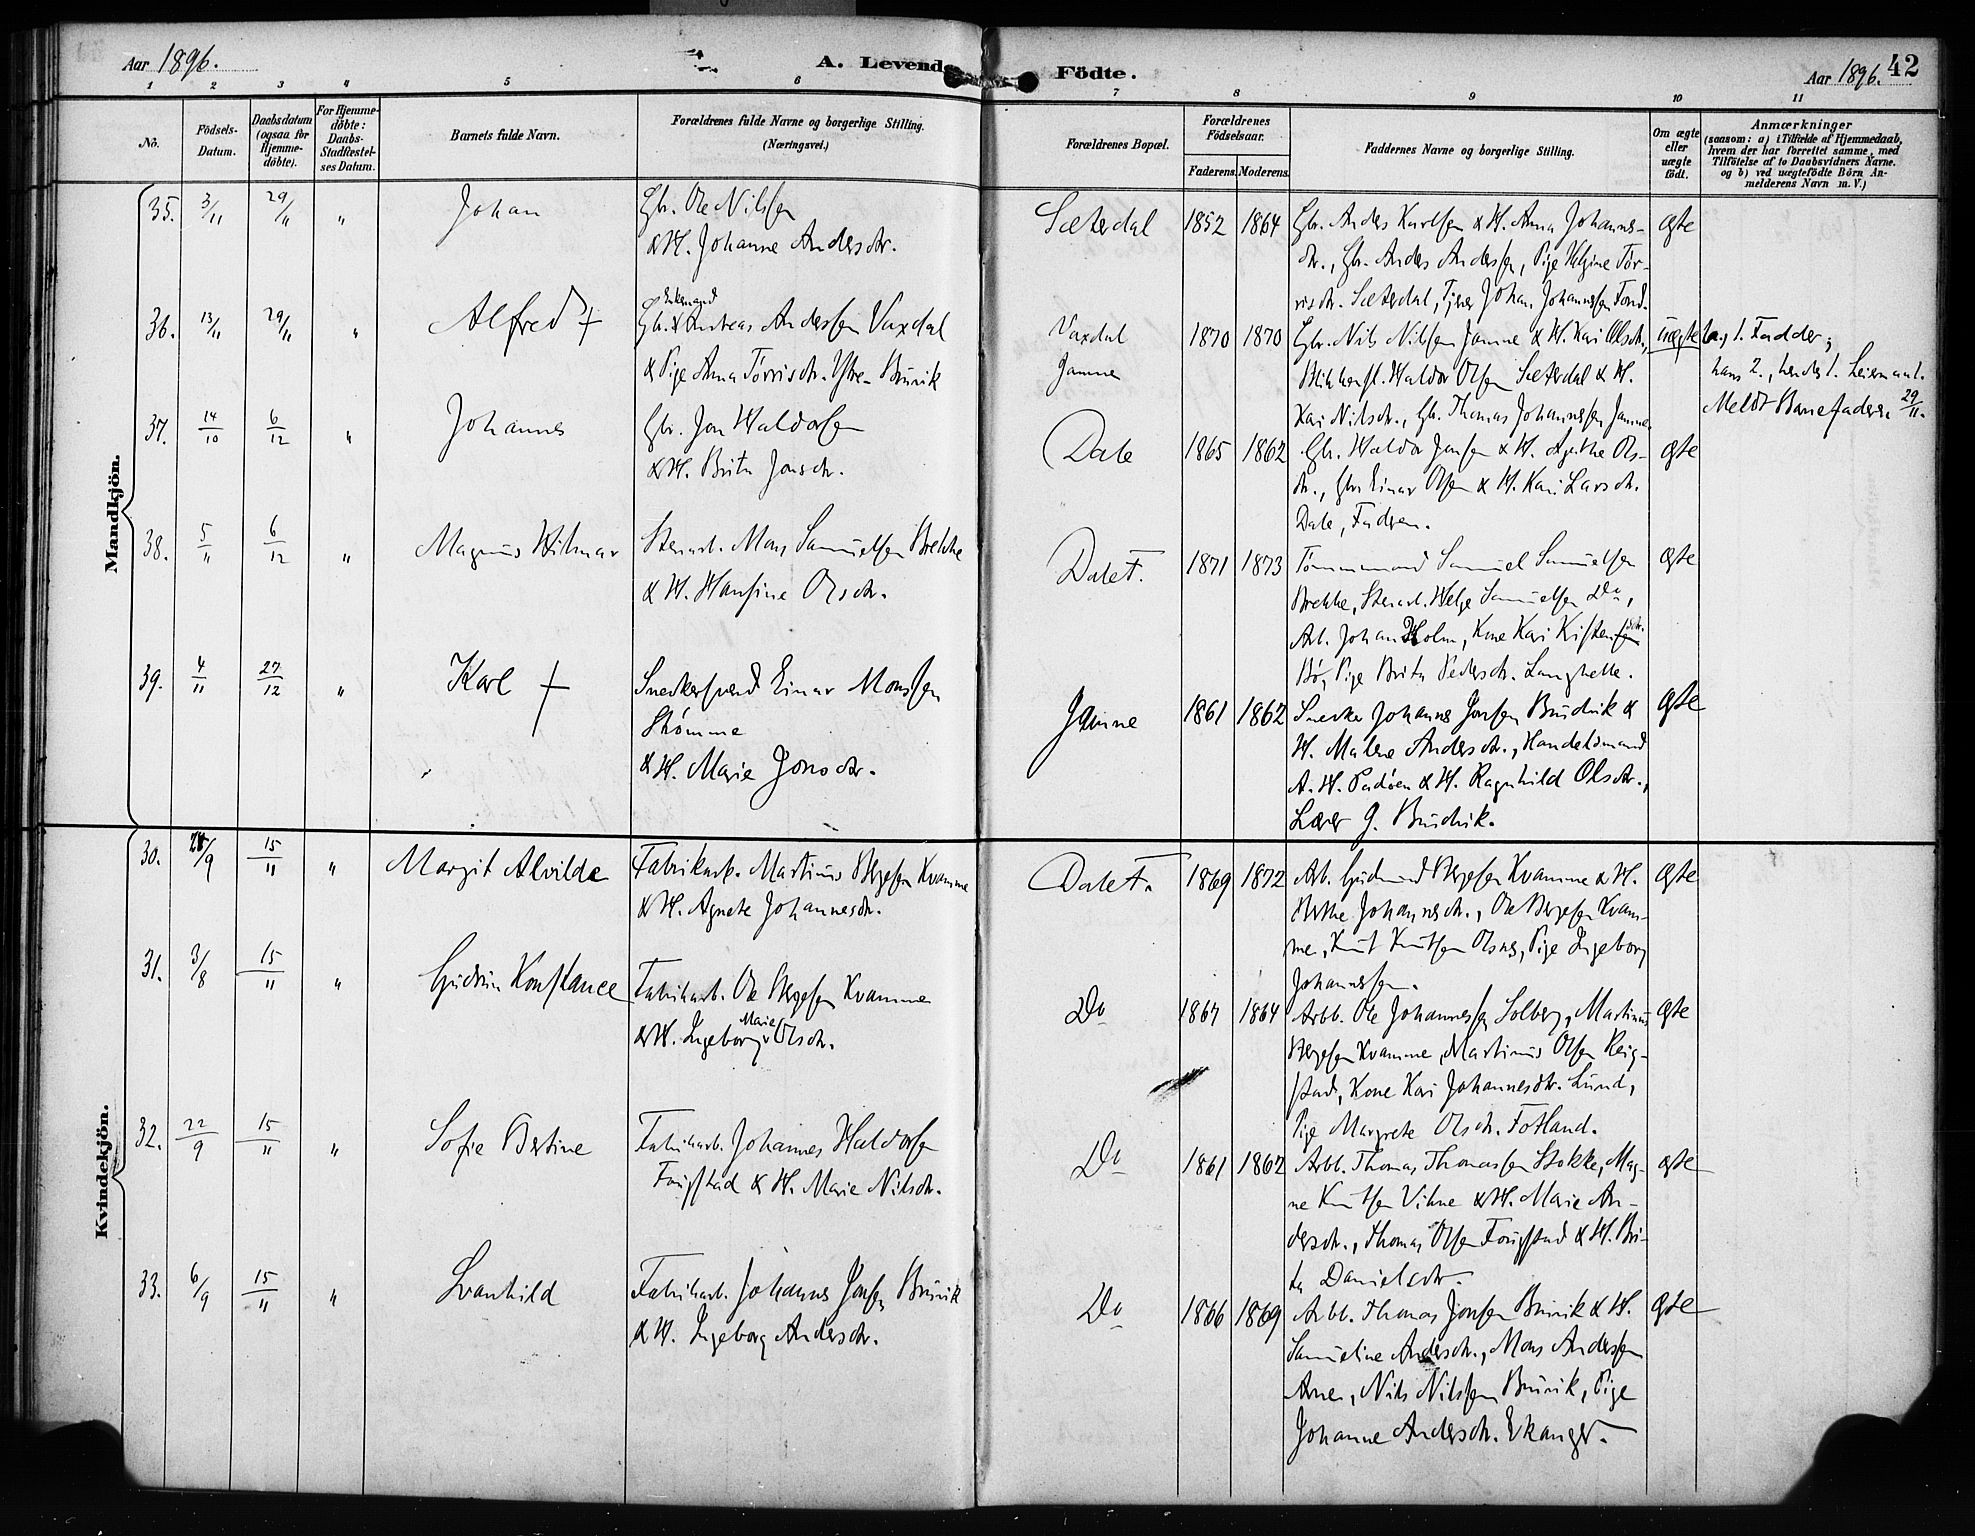 Aar 1896.
A. Levende Födte.
Aar 1896. 42
1 2 3 4 5 6 7 8 9 10 11
No.
Födsels-Datum.
Daabsdatum (ogsaa for Hjemme-döbte).
For Hjemme-döbte: Daabs-Stadfæstel-ses Datum.
Barnets fulde Navn.
Forældrenes fulde Navne og borgerlige Stilling. (Næringsvei.)
Forældrenes Bopæl.
Forældrenes Födselsaar.
Faderens. Moderens.
Faddernes Navne og borgerlige Stilling.
Om ægte eller uægte födt.
Anmærkninger
(saasom: a) i Tilfælde af Hjemmedaab, hvem der har forrettet samme, med Tilföielse af to Daabsvidners Navne. og b) ved uægtefödte Börn An-melderens Navn m. V.)
Mandkjön.
35. 3/11 29/11 " Johan
Gbr. Ole Nilsen
& H. Johanne Andersdtr.
Sæterdal 1852 1864
Gbr. Anders Karlsen & H. Anna Johannes-
dtr., Gbr. Anders Andersen, Pige Helgine Tør-
risdtr. Sæterdal, Tjener Johan Johannesen Fond.
ægte
36. 13/11 29/11 " Alfred +
Gbr. & Enkemand Andreas Andersen Vaxdal
& Pige Anna Tørrisdtr. Ytre-Bruvik
Vaxdal
Jamne
1870 1870
Gbr. Nils Nilsen Jamne & H. Kari Olsdtr.,
Haldor Olsen Sæterdal & H.
Kari Nilsdtr., Gb. Thomas Johannesen Jamne
uægte
1. Fadder;
hans 2., hendes 1. Leiermaal.
Meldt Barnefaderen 29/11.
37. 14/10 6/12 " Johannes
Gbr. Jon Haldorsen
& H. Brita Jonsdtr.
Dale 1865 1862
Gb. Haldor Jonsen & H. Agathe Ols-
dtr., Gbr. Einar Olsen & H. Kari Larsdtr.
Dale, Faderen.
ægte
38. 5/11 6/12 " Magnus Hilmar
Stenarb. Mons Samuelsen Brekke
& H. Hansine Olsdtr.
Dale F. 1871 1873
Tømmermand Samuel Samuelsen
Brekke, Stenarb. Helge Samuelsen Do,
Arb. Johan Holm, Kone Kari Kristensdtr.
Bø, Pige Brita Pedersdtr. Langhelle.
ægte
39. 4/11 27/12 " Karl +
Snedkersvend Einar Monsen
Strømme
& H. Marie Jonsdtr.
Jamne 1861 1862
Snedker Johannes Jonsen Bruvik &
H. Malene Andersdtr., Handelsmand
A. H. Padøen & H. Ragnhild Olsdtr.,
Lærer G. Brudvik.
ægte
Kvindekjön.
30. 28/9 15/11 " Margit Alvilde
Fabrikarb. Martinus Bergesen Kvamme
& H. Agnete Johannesdtr.
Dale F. 1869 1872
Arb. Gudmund Bergesen Kvamme & H.
Berthe Johannesdtr., Ole Bergesen Kvam-
me, Knut Knutsen Olsnes, Pige Ingeborg
Johannesen.
ægte
31. 3/8 15/11 " Gudrun Konstance
Fabrikarb. Ole Bergesen Kvamme
& H. Ingeborg Marie Olsdtr.
Do 1867 1864
Arbb. Ole Johannesen Solberg, Martinus
Bergesen Kvamme, Martinus Olsen Reig-
stad, Kone Kari Johannesdtr. Lund,
Pige Margrete Olsdtr. Fotland.
ægte
32. 22/9 15/11 " Sofie Bertine
Fabrikarb. Johannes Haldorsen
Fosstad & H. Marie Nilsdtr.
Do 1861 1862
Arbb. Thomas Thomassen Stokke, Mag-
ne Knutsen Vikne & H. Marie An-
dersdtr., Thomas Olsen & H. Bri-
ta Danielsdtr.
ægte
33. 6/9 15/11 " Svanhild
Fabrikarb. Johannes Jonsen Bruvik
& H. Ingeborg Andersdtr.
Do 1866 1869
Arbb. Thomas Jonsen Bruvik & H.
Samueline Andersdtr., Mons Andersen
Arne, Nils Nilsen Bruvik, Pige
Johanne Andersdtr. Ekanger.
ægte